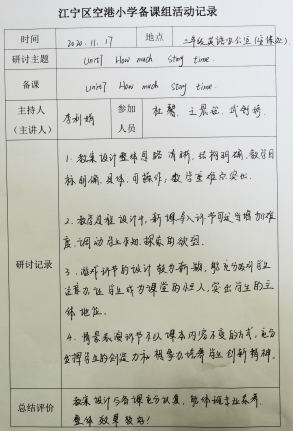 江宁区空港小学备课组活动记录
时间 2020.11.17 地点 三年级英语办公室
研讨主题 unit7 How much story time.
备课 unit7 How much story time.
主持人 参加
(主讲人) 李利娟 人员 杜馨
1. 教案设计整体思路清晰, 结构明确, 教学目
标明确、具体、可操作, 教学重难点突出.
2. 教学过程设计中, 新课导入环节可适当增加难
度, 调动学生求知、探索的欲望.
研讨记录
3. 游戏环节的设计较为新颖, 能充分吸引学生
注意力, 让学生成为课堂的主人, 突出学生的主
体地位.
4. 情景表演环节可以课本内容不变的方式, 充分
发挥学生的创造力和想象力, 培养学生创新精神.
总结评价 教案设计与备课充分, 能体现专业素养,
整体效果较好!